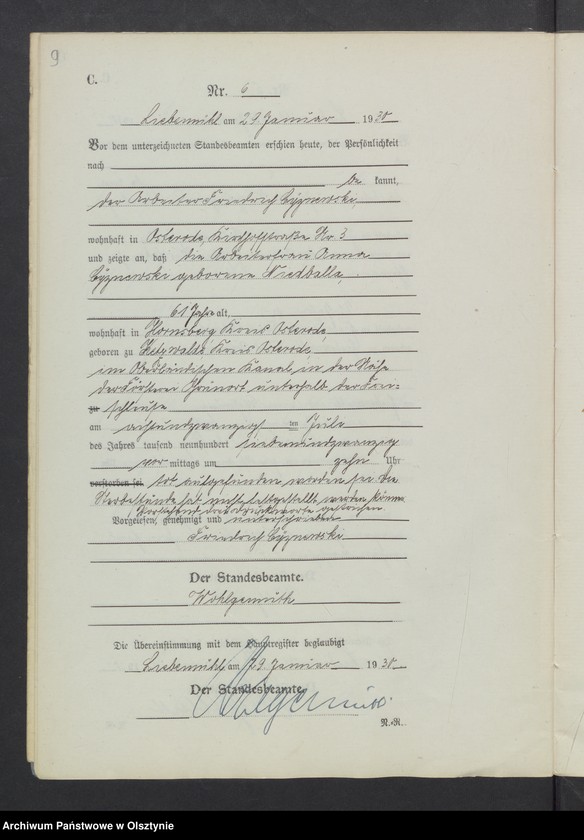 9
C.
Nr. 6
Liebemühl am 29. Januar 1930
Vor dem unterzeichneten Standesbeamten erschien heute, der Persönlichkeit
nach
be kannt,
der Arbeiter Friedrich Czyzewski,
wohnhaft in Osterode, Kirchhofstraße Nr 3
und zeigte an, daß die Arbeiterfrau Anna
Czyzewski geborene Niedballa,
61 Jahre alt,
wohnhaft in Hornsberg Kreis Osterode,
geboren zu Kreis Osterode,
im Oberländischen Kanal, in der Nähe
der Försterei Grünort unterhalb der Frei-
zu schleuse
am achtundzwanzigsten Juli
des Jahres tausend neunhundert siebenundzwanzig
vor mittags um zehn Uhr
verstorben sei. tot aufgefunden worden sei die
Sterbestunde hat nicht festgestellt werden können
Vorstehend drei Druckworte gestrichen
Vorgelesen, genehmigt und unterschrieben
Friedrich Czyzewski
Der Standesbeamte.
Wohlgemuth
Die Übereinstimmung mit dem Hauptregister beglaubigt
Liebemühl am 29. Januar 1930
Der Standesbeamte.
Wohlgemuth
Archiwum Państwowe w Olsztynie